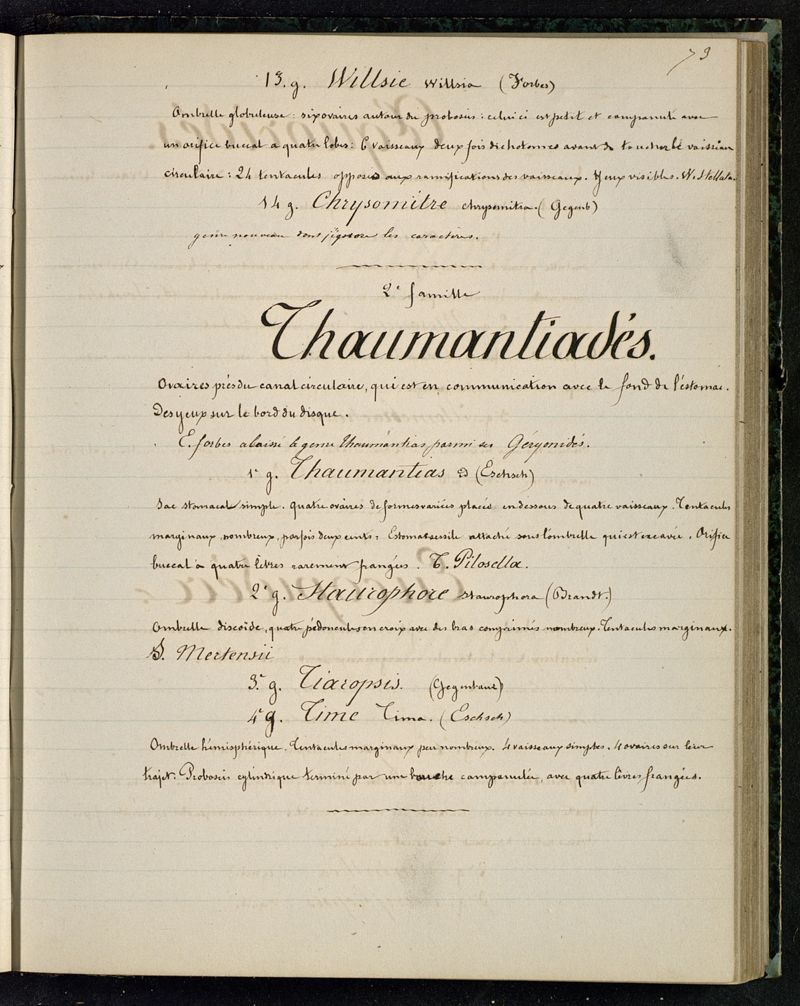 73
13. g. Willsie Willsia (Forbes)
Ombrelle globuleuse : six ovaires autour du proboscis : celui ci est petit et campanulé avec
un orifice buccal a quatre lobes : 6 vaisseaux deux fois dichotomes avant de toucher le vaisseau
circulaire : 24 tentacules opposés aux ramifications des vaisseaux. Yeux visibles. W. Stellata.
14 g. Chrysomitre chrysomitra. (Gegenb)
genre nouveau dont j'ignore les caractères.
2e famille
Thaumantiadés.
Ovaires près du canal circulaire, qui est en communication avec le fond de l'éstomac.
Des yeux sur le bord du disque.
E. forbes a laissé le genre thaumantias parmi ses Géryonidés.
1e g. Thaumantias (Eschsch)
Sac stomacal simple. quatre ovaires de formes variées placés en dessous de quatre vaisseaux. Tentacules
marginaux, nombreux, parfois deux cents. Estomac sessile attaché sous l'ombrelle qui est excavée. Orifice
buccal a quatre lèvres rarement frangées. T. Pilosella.
2e g. Staurophore Staurophora (Brandt.)
Ombrelle discoïde, quatre pédoncules en croix avec des bras comprimés nombreux. Tentacules marginaux.
S. Mertensii
3e g. Tiaropsis. (Gegenbaur)
4e g. Time Tima. (Eschsch)
Ombrelle hémisphérique. Tentacules marginaux peu nombreux. 4 vaisseaux simples. 4 ovaires sur leur
trajet. Proboscis cylindrique terminé par une bouche campanulée, avec quatre lèvres frangées.